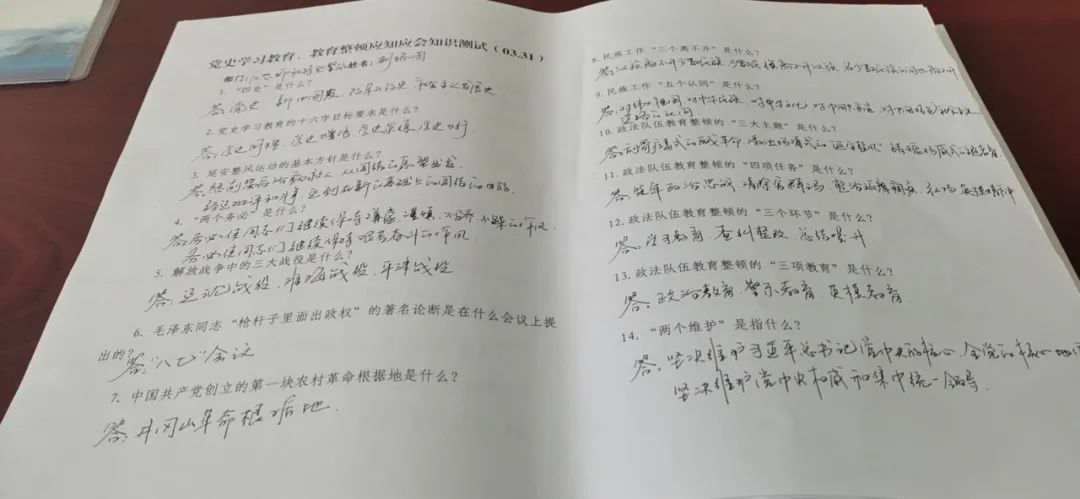 党史学习教育、教育整顿应知应会知识测试（03.31）
部门： 姓名：
1. “四史”是什么？
答：党史 新中国史、改革开放史、社会主义发展史.
2. 党史学习教育的十六字目标要求是什么？
答：学史明理、学史增信、学史崇德、学史力行.
3. 延安整风运动的基本方针是什么？
答：惩前毖后治病救人 从团结
经过批评和斗争 达到在新的基础上的团结的目的.
4. “两个务必”是什么？
答：务必使同志们继续保持谦虚、谨慎、不骄、不躁的作风.
务必使同志们继续保持艰苦奋斗的作风.
5. 解放战争中的三大战役是什么？
答：辽沈战役、淮海战役、平津战役
6. 毛泽东同志“枪杆子里面出政权”的著名论断是在什么会议上提
出的？
答：“八七”会议
7. 中国共产党创立的第一块农村革命根据地是什么？
答：井冈山革命根据地.
8. 民族工作“三个离不开”是什么？
答：汉族离不开少数民族 少数民族离不开汉族 各少数民族
9. 民族工作“五个认同”是什么？
答：对伟大祖国、对中华民族、对中华文化、对中国共产党、对中国特色社会主义
10. 政法队伍教育整顿的“三大主题”是什么？
11. 政法队伍教育整顿的“四项任务”是什么？
答：筑牢政治忠诚 清除害群之马、整治顽瘴痼疾、弘扬英模精神
12. 政法队伍教育整顿的“三个环节”是什么？
答：学习教育、查纠整改、总结提升.
13. 政法队伍教育整顿的“三项教育”是什么？
答：政治教育、警示教育、英模教育.
14. “两个维护”是指什么？
答：坚决维护习近平总书记党中央的核心、全党的核心地位
坚决维护党中央权威和集中统一领导.